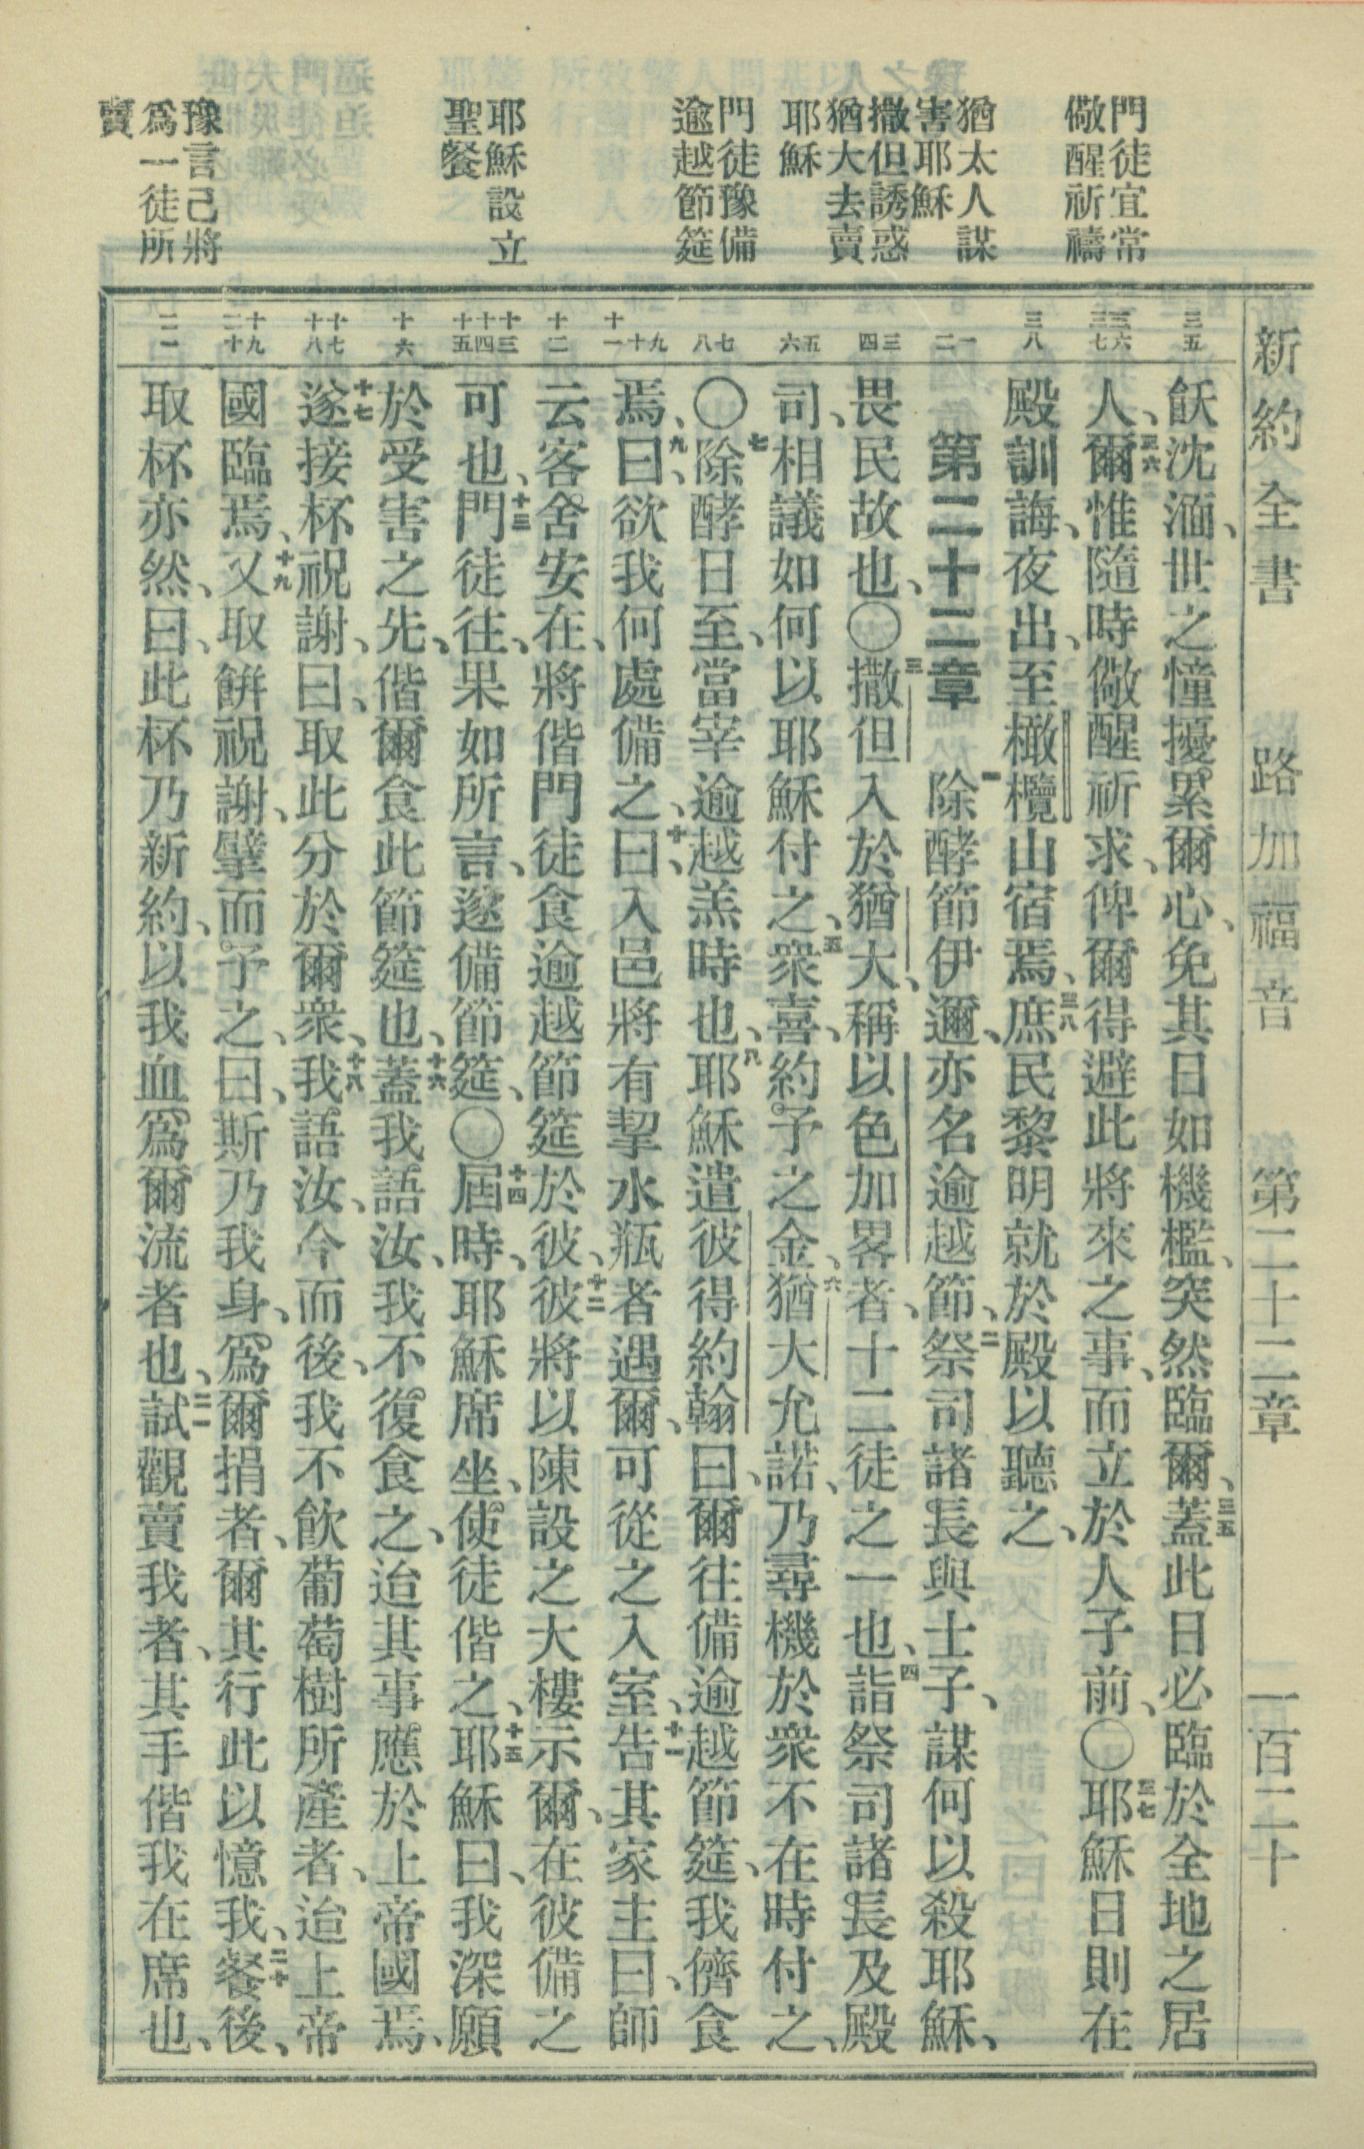 新約全書 路加福音 第二十二章 一百二十
門徒宜常
儆醒祈禱
猶太人謀
害耶穌
撒但誘惑
猶大去賣
耶穌
門徒豫備
逾越節筵
耶穌設立
聖餐
豫言己將
爲一徒所
賣
三五
三六 三七
三八
一 二
三 四
五 六
七 八
九 十 十一
十二
十三 十四 十五
十六
十七 十八
十九 二十
二一
飫沈湎、世之憧擾累爾心、免其日如機檻、突然臨爾、三五蓋此日必臨於全地之居
人、三六爾惟隨時儆醒祈求、俾爾得避此將來之事、而立於人子前、〇三七耶穌日則在
殿訓誨、夜出、至橄欖山宿焉、三八庶民黎明就於殿以聽之、
第二十二章 一除酵節伊邇、亦名逾越節、二祭司諸長與士子、謀何以殺耶穌、
畏民故也、〇三撒但入於猶大、稱以色加畧者、十二徒之一也、四詣祭司諸長及殿
司、相議如何以耶穌付之、五衆喜、約予之金、六猶大允諾、乃尋機於衆不在時付之、
〇七除酵日至、當宰逾越羔時也、八耶穌遣彼得約翰曰、爾往備逾越節筵、我儕食
焉、九曰、欲我何處備之、十曰、入邑將有挈水瓶者遇爾、可從之入室、十一告其家主曰、師
云客舍安在、將偕門徒食逾越節筵於彼、十二彼將以陳設之大樓示爾、在彼備之
可也、十三門徒往、果如所言、遂備節筵、〇十四屆時、耶穌席坐、使徒偕之、十五耶穌曰、我深願
於受害之先、偕爾食此節筵也、十六蓋我語汝、我不復食之、迨其事應於上帝國焉、
十七遂接杯祝謝、曰、取此分於爾衆、十八我語汝、今而後、我不飲葡萄樹所產者、迨上帝
國臨焉、十九又取餅祝謝、擘而予之、曰、斯乃我身、爲爾捐者、爾其行此以憶我、二十餐後、
取杯亦然、曰、此杯乃新約、以我血爲爾流者也、二一試觀賣我者、其手偕我在席也、